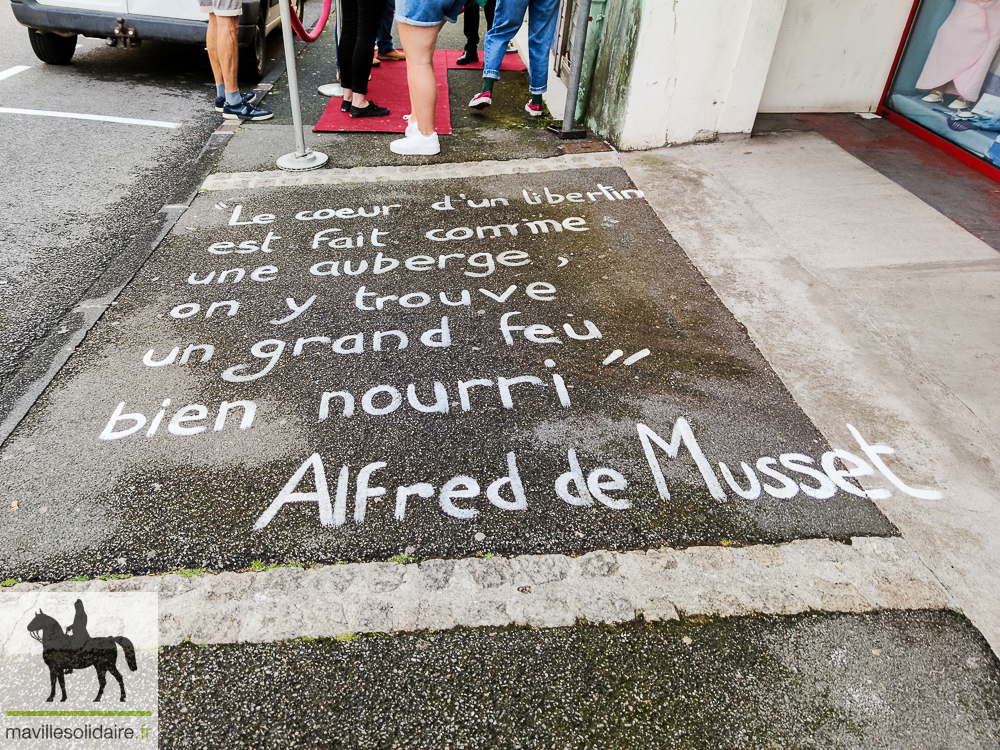 "Le coeur d'un libertin
est fait comme
une auberge,
on y trouve
un grand feu
bien nourri"
Alfred de Musset
mavillesolidaire.fr